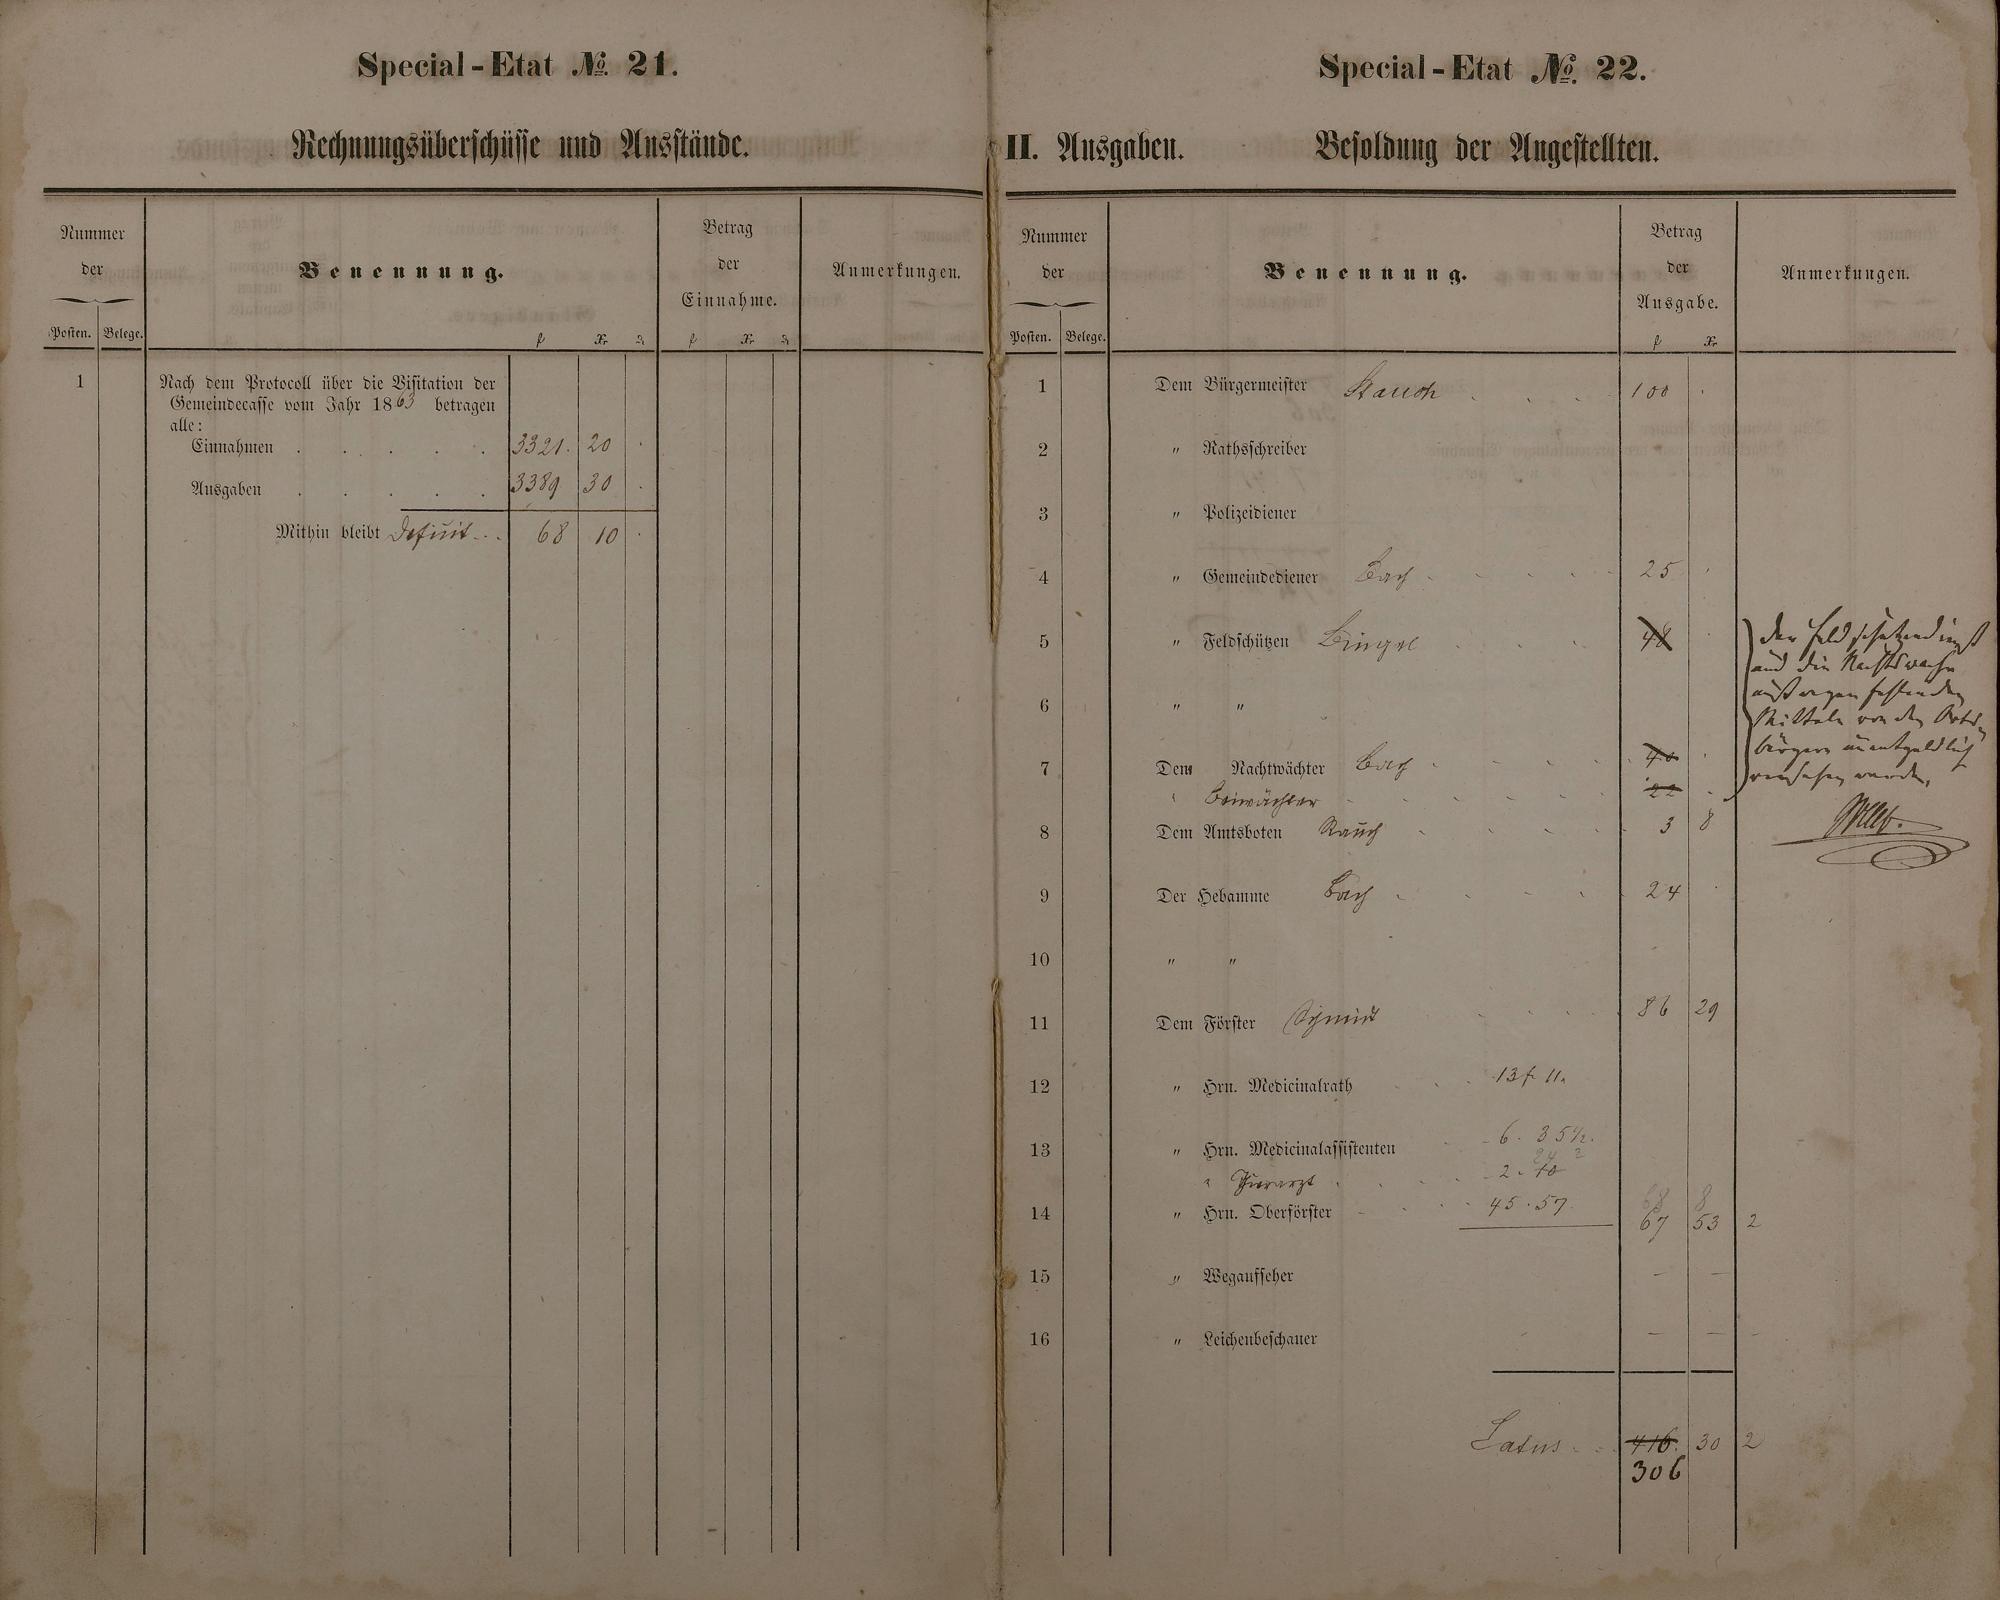 Special-Etat № 21.
Rechnungsüberschüsse und Ausstände.
Nummer der
Posten. Belege.
Benennung.
f Xr ₰
Betrag der Einnahme.
f Xr ₰
Anmerkungen.
1 Nach dem Protocoll über die Visitation der
Gemeindecasse vom Jahr 1863 betragen
alle:
Einnahmen . . . . . 3321. 20 .
Ausgaben . . . . . 3389 30 .
Mithin bleibt Deficit . . 68 10 .
Special-Etat № 22.
II. Ausgaben. Besoldung der Angestellten.
Nummer der
Posten. Belege.
Benennung.
Betrag der Ausgabe.
f Xr
Anmerkungen.
1 Dem Bürgermeister Rauch . . . 100 .
2 " Rathsschreiber
3 " Polizeidiener
4 " Gemeindediener Bach . . . . 25 .
5 " Feldschützen Bingel . . . 48 .
6 " "
7 Dem Nachtwächter Bach . . . . 40 .
" Beiwächter . . . . . 22 .
der Feldschützendienst
und die Nachtswache
muß wegen fehlenden
Mitteln von den Orts-
bürgern unentgeldlich
versehen werden.
8 Dem Amtsboten Rauch . . . . 3 8
9 Der Hebamme Bach . . . . 24 .
10 " "
11 Dem Förster Schmidt . . . . 86 29
12 " Hrn. Medicinalrath . . 13 f 11.
13 " Hrn. Medicinalassistenten . 6. 35½.
24 2
" Thierarzt . . . . 2. 10
14 " Hrn. Oberförster . . . . 45. 57.
68 8
67 53 2
15 " Wegaufseher — —
16 " Leichenbeschauer — — —
Latus . . 416. 30 2
306